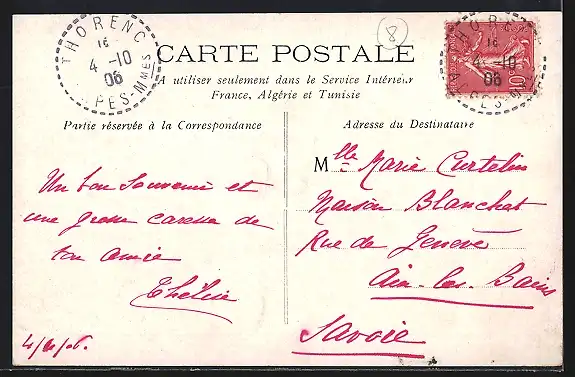 THORENC
16
4 -10
06
ALPES-MMES
8
CARTE POSTALE
A utiliser seulement dans le Service Intérieur
France, Algérie et Tunisie
Partie réservée à la Correspondance
Adresse du Destinataire
Un bon souvenir et
une grosse caresse de
ton amie
Mlle Marie Curtelin
Maison Blanchet
Rue de Genève
Aix-les-Bains
Savoie
THOREN
16
4 -10
06
10